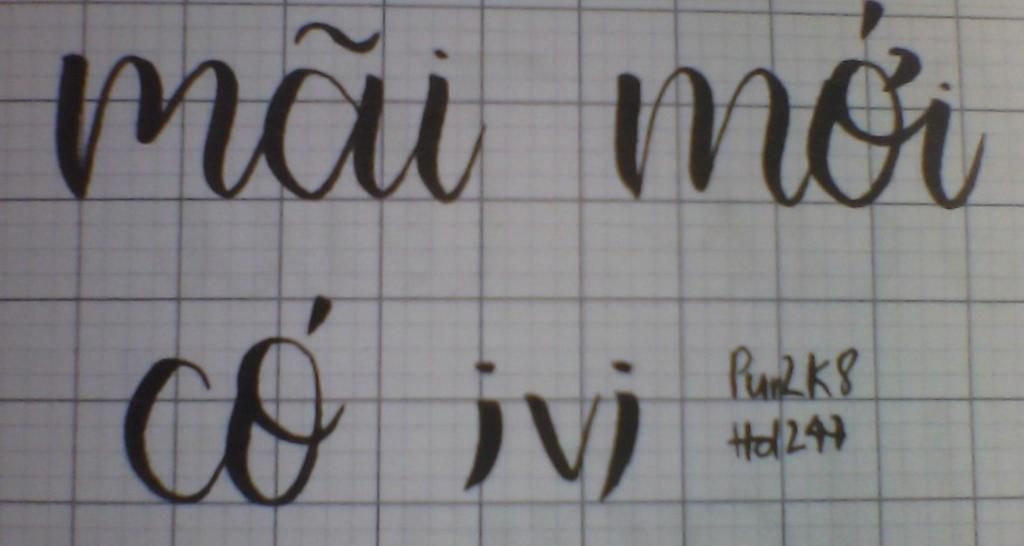 mãi mới
có ;v;
Pun2K8
Hd247